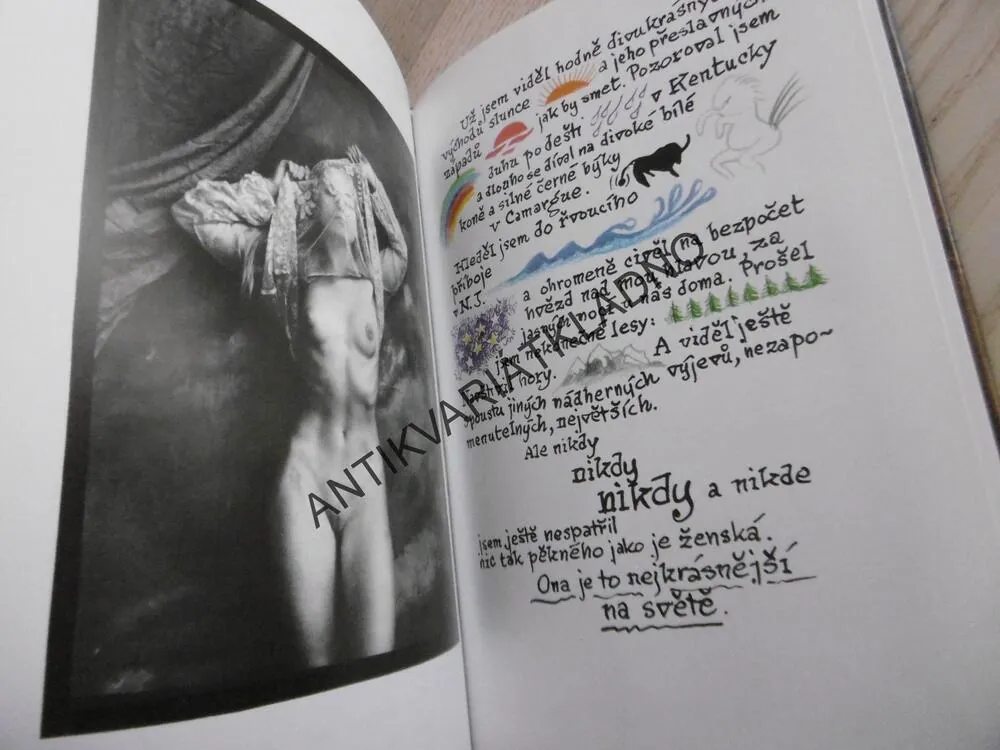 Už jsem viděl hodně divukrásných
východů slunce a jeho přeslavných
západů jak by smet. Pozoroval jsem
duhu po dešti v Kentucky
a dlouho se díval na divoké bílé
koně a silné černé býky
v Camargue.
Hleděl jsem do řvoucího
příboje
v N.J. a ohromeně civěl na bezpočet
hvězd nad mou hlavou, za
jasných nocí u nás doma. Prošel
jsem nekonečné lesy:
hory. A viděl ještě
spoustu jiných nádherných výjevů, nezapo-
menutelných, největších.
Ale nikdy
nikdy
nikdy a nikde
jsem ještě nespatřil
nic tak pěkného jako je ženská.
Ona je to nejkrásnější
na světě.
ANTIKVARIÁT KLADNO